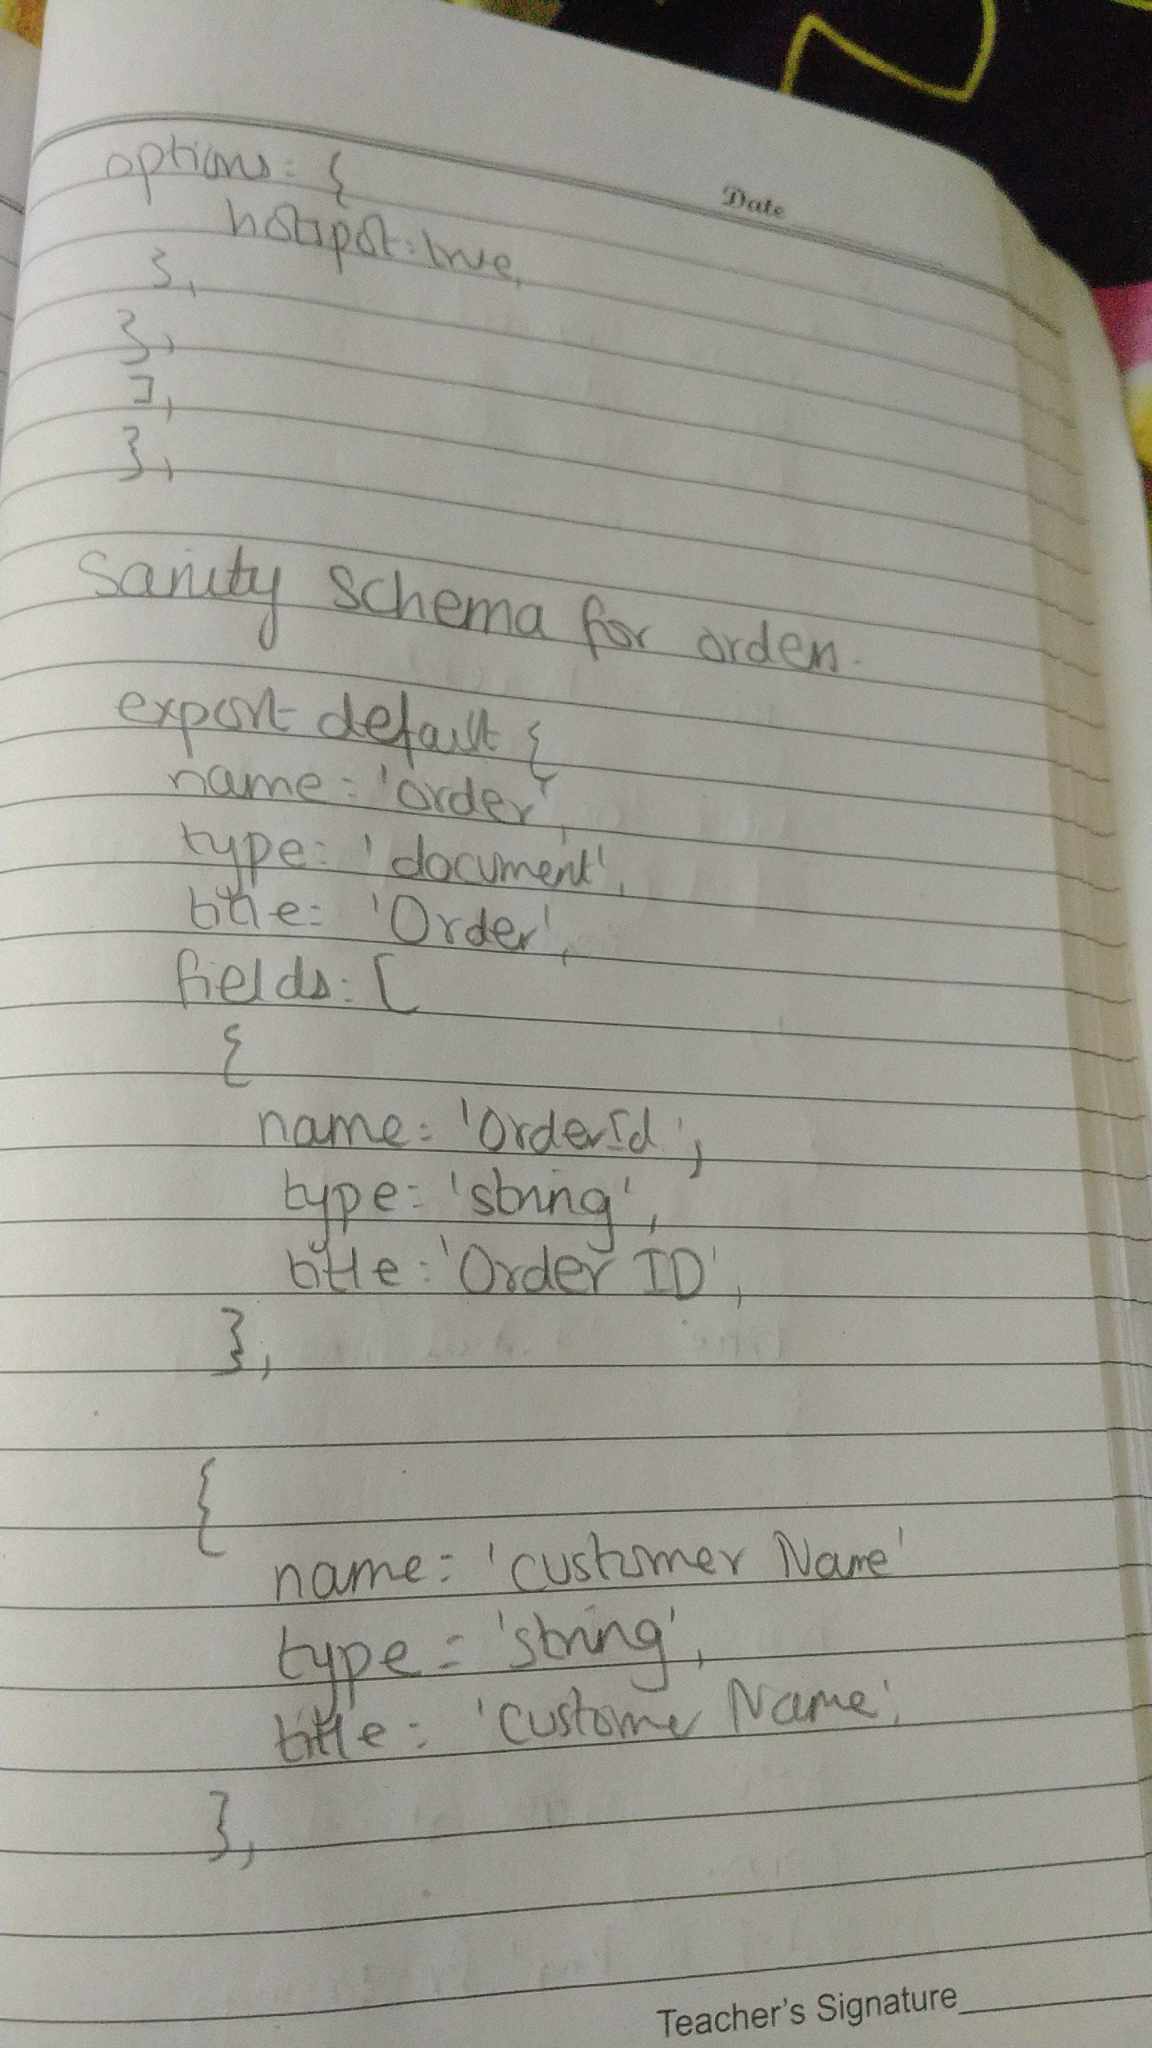 Date
options: {
hotspot: true,
},
},
],
},
Sanity Schema for orders.
export default {
name: 'order',
type: 'document',
title: 'Order',
fields: [
{
name: 'OrderId',
type: 'string',
title: 'Order ID',
},
{
name: 'customer Name'
type: 'string',
title: 'Customer Name',
},
Teacher's Signature